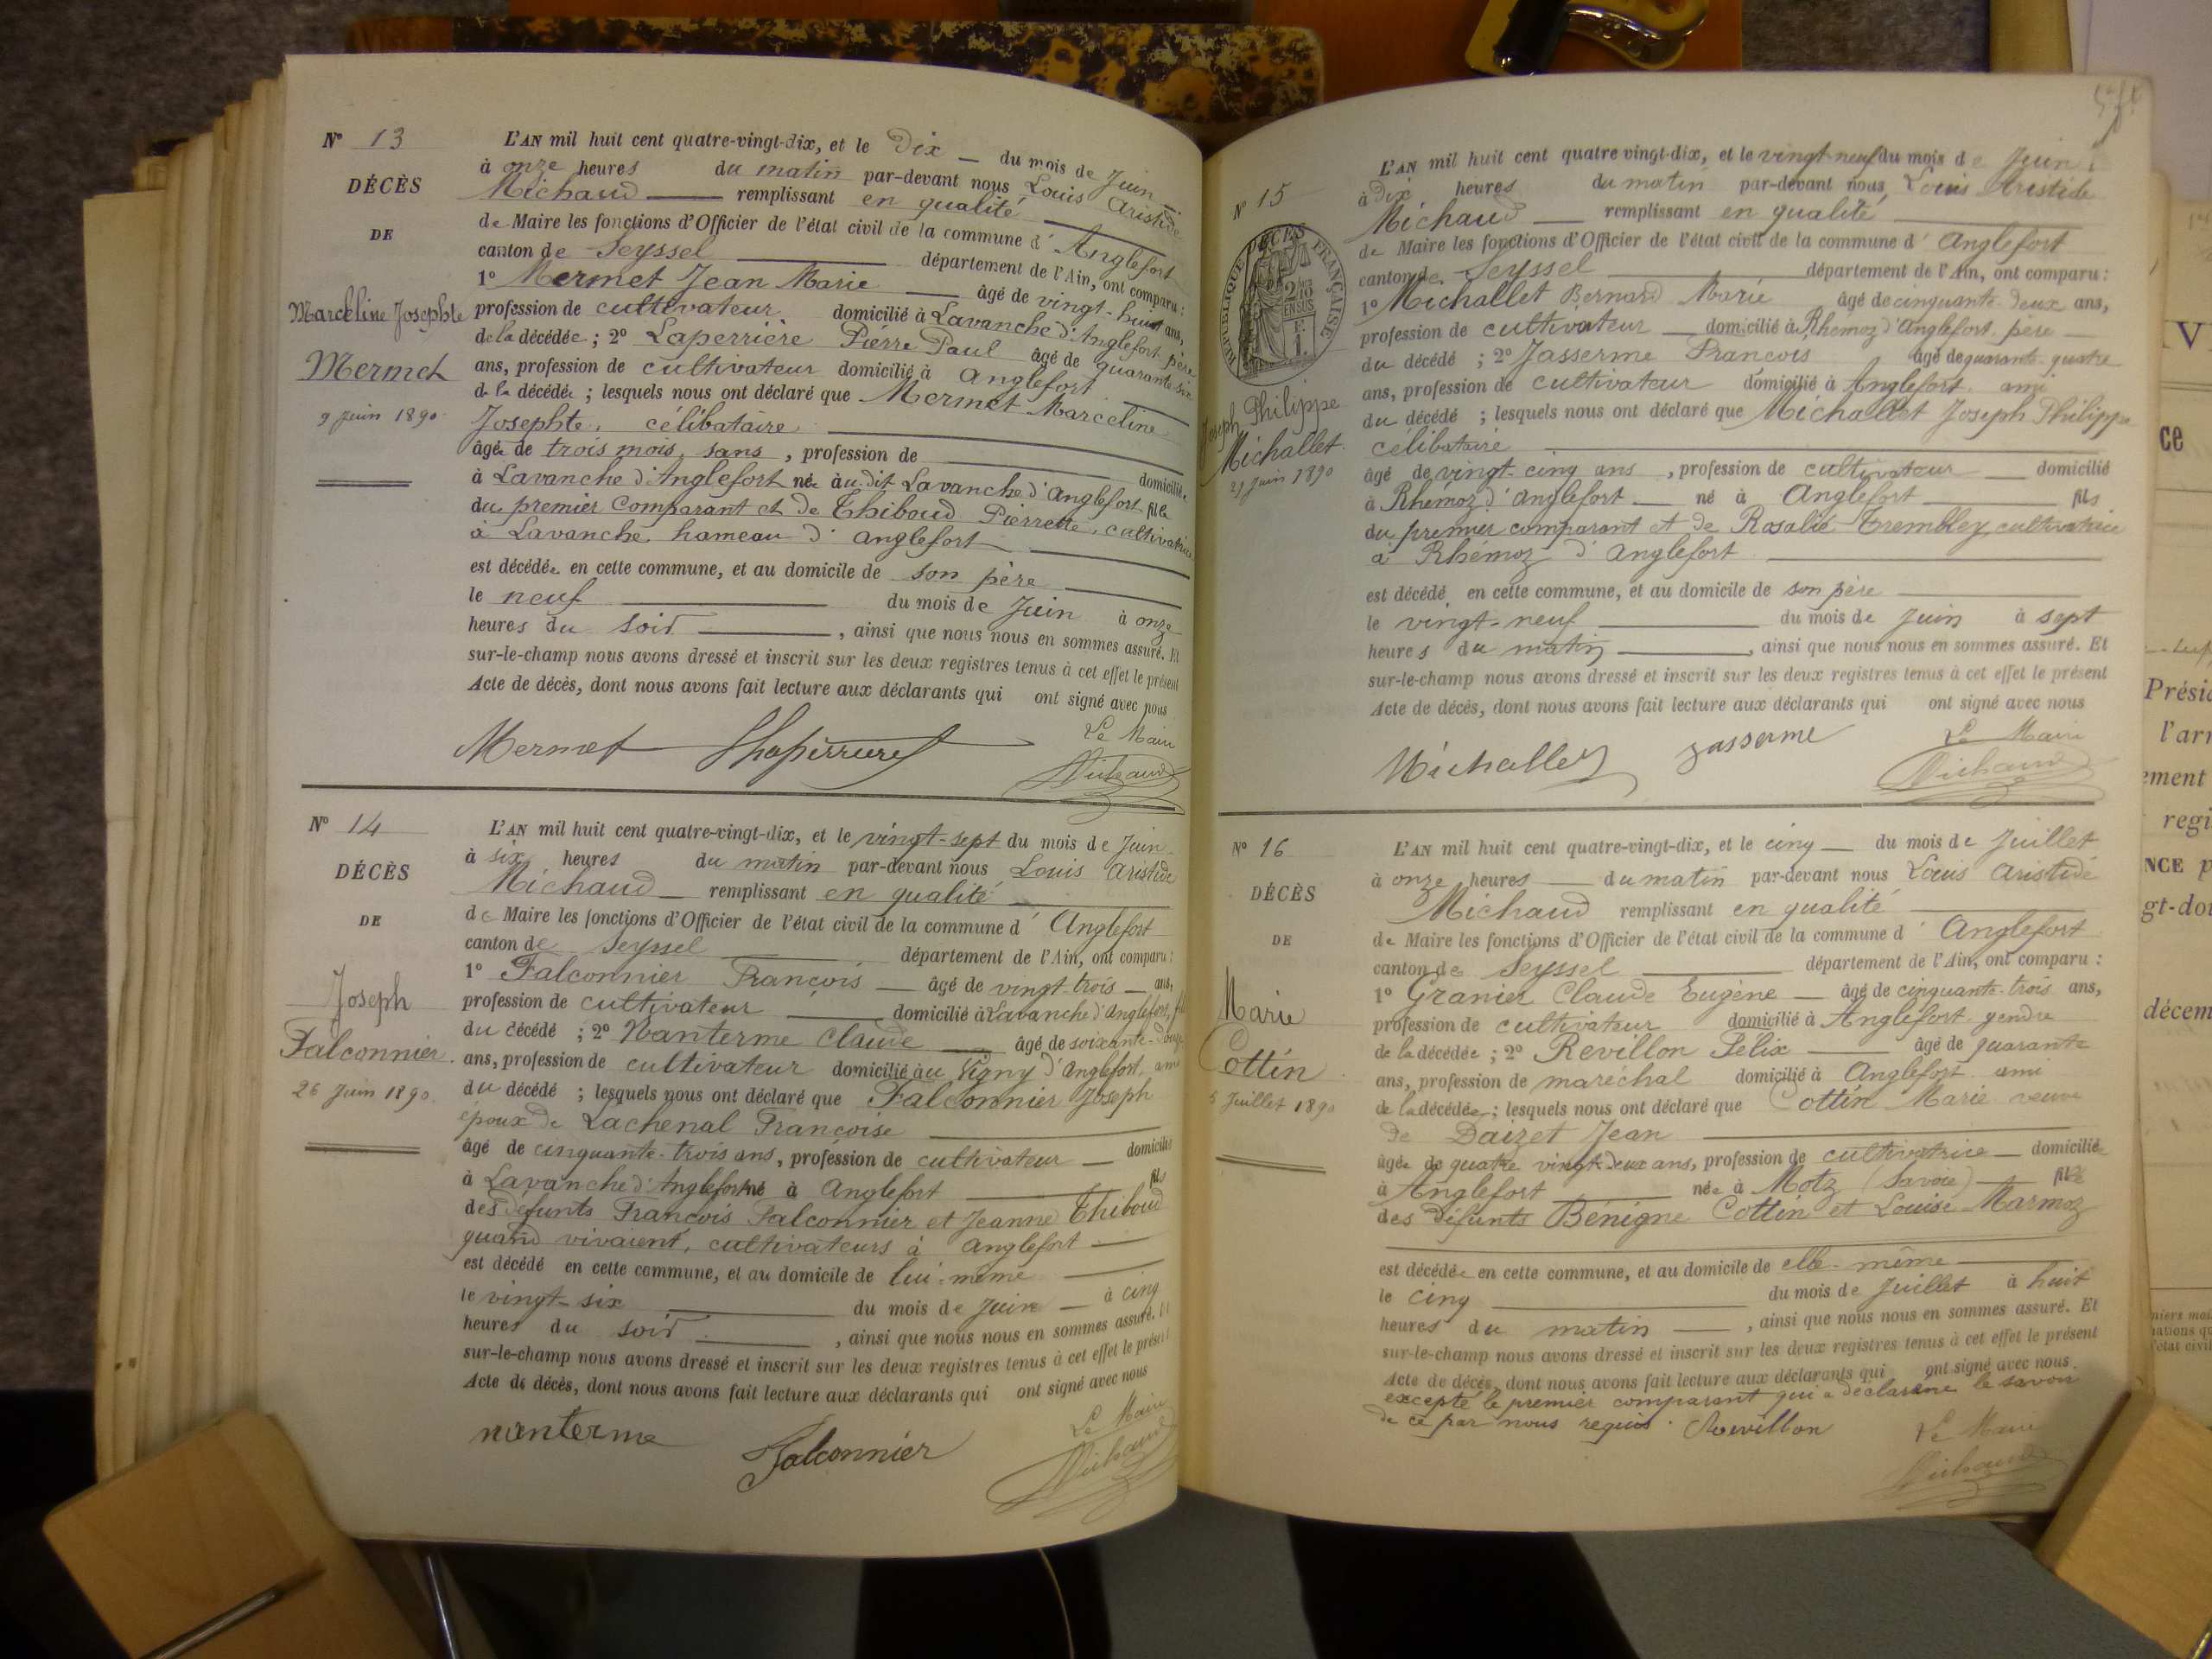 Nº 13
DÉCÈS
DE
Marcéline Josephte
Mermet
9 Juin 1890
L'AN mil huit cent quatre-vingt-dix, et le Dix — du mois de Juin
à onze heures du matin par-devant nous Louis Aristide
Michaud — remplissant en qualité
de Maire les fonctions d'Officier de l'état civil de la commune d' Anglefort
canton de Seyssel département de l'Ain, ont comparu :
1º Mermet Jean Marie — âgé de vingt-huit ans,
profession de cultivateur domicilié à Lavanche d'Anglefort père
de la décédée ; 2º Laperrière Pierre Paul âgé de quarante six
ans, profession de cultivateur domicilié à Anglefort
de la décédée ; lesquels nous ont déclaré que Mermet Marceline
Josephte, célibataire
âgée de trois mois, sans , profession de domiciliée
à Lavanche d'Anglefort née à u dit Lavanche d'Anglefort fille
du premier Comparant et de Thiboud Pierrette, cultivatrice
à Lavanche hameau d' anglefort
est décédée en cette commune, et au domicile de son père
le neuf du mois de Juin à onze
heures du soir , ainsi que nous nous en sommes assuré. Et
sur-le-champ nous avons dressé et inscrit sur les deux registres tenus à cet effet le présent
Acte de décès, dont nous avons fait lecture aux déclarants qui ont signé avec nous
Le Maire
Mermet Michaud
Nº 14
DÉCÈS
DE
Joseph
Falconnier
26 Juin 1890
L'AN mil huit cent quatre-vingt-dix, et le vingt-sept du mois de Juin
à six heures du matin par-devant nous Louis Aristide
Michaud — remplissant en qualité
de Maire les fonctions d'Officier de l'état civil de la commune d' Anglefort
canton de Seyssel département de l'Ain, ont comparu :
1º Falconnier François — âgé de vingt-trois — ans,
profession de cultivateur domicilié à Lavanche d'Anglefort, fils
du décédé ; 2º Nanterme Claude âgé de soixante-douze
ans, profession de cultivateur domicilié au Vigny d'Anglefort, ami
du décédé ; lesquels nous ont déclaré que Falconnier Joseph
epoux de Lachenal Françoise
âgé de cinquante-trois ans, profession de cultivateur — domicilié
à Lavanche d'Anglefort né à Anglefort fils
des défunts François Falconnier et Jeanne Thiboud
quand vivaient, cultivateurs à Anglefort
est décédé en cette commune, et au domicile de lui-même
le vingt-six du mois de Juin — à cinq
heures du soir , ainsi que nous nous en sommes assuré. Et
sur-le-champ nous avons dressé et inscrit sur les deux registres tenus à cet effet le présent
Acte de décès, dont nous avons fait lecture aux déclarants qui ont signé avec nous
Le Maire
nanterme Falconnier Michaud
Nº 15
RÉPUBLIQUE FRANÇAISE
DÉCÈS
Joseph Philippe
Michallet
29 Juin 1890
L'AN mil huit cent quatre vingt-dix, et le vingt-neuf du mois de Juin
à dix heures du matin par-devant nous Louis Aristide
Michaud — remplissant en qualité
de Maire les fonctions d'Officier de l'état civil de la commune d' Anglefort
canton de Seyssel département de l'Ain, ont comparu :
1º Michallet Bernard Marie âgé de cinquante-deux ans,
profession de cultivateur — domicilié à Rhemoz d'Anglefort père
du décédé ; 2º Jasserme François âgé de quarante-quatre
ans, profession de cultivateur domicilié à Anglefort ami
du décédé ; lesquels nous ont déclaré que Michallet Joseph Philippe
célibataire
âgé de vingt-cinq ans , profession de cultivateur — domicilié
à Rhemoz d'Anglefort — né à Anglefort fils
du premier comparant et de Rosalie Trembley, cultivatrice
à Rhémoz d'Anglefort
est décédé en cette commune, et au domicile de son père
le vingt-neuf du mois de Juin à sept
heures du matin , ainsi que nous nous en sommes assuré. Et
sur-le-champ nous avons dressé et inscrit sur les deux registres tenus à cet effet le présent
Acte de décès, dont nous avons fait lecture aux déclarants qui ont signé avec nous
Le Maire
Michallet Jasserme Michaud
Nº 16
DÉCÈS
DE
Marie
Cottin
5 Juillet 1890
L'AN mil huit cent quatre-vingt-dix, et le cinq — du mois de Juillet
à onze heures — du matin par-devant nous Louis Aristide
Michaud remplissant en qualité
de Maire les fonctions d'Officier de l'état civil de la commune d' Anglefort
canton de Seyssel département de l'Ain, ont comparu :
1º Granier Claude Eugène — âgé de cinquante-trois ans,
profession de cultivateur domicilié à Anglefort gendre
de la décédée ; 2º Revillon Félix âgé de quarante
ans, profession de maréchal domicilié à Anglefort ami
de la décédée ; lesquels nous ont déclaré que Cottin Marie veuve
de Daizet Jean
âgée de quatre vingt-deux ans, profession de cultivatrice — domiciliée
à Anglefort née à Motz (Savoie) — fille
des défunts Bénigne Cottin et Louise Marmoz
est décédée en cette commune, et au domicile de elle-même
le cinq du mois de Juillet à huit
heures du matin — , ainsi que nous nous en sommes assuré. Et
sur-le-champ nous avons dressé et inscrit sur les deux registres tenus à cet effet le présent
Acte de décès, dont nous avons fait lecture aux déclarants qui ont signé avec nous
excepté le premier comparant qui a déclaré ne le savoir
de ce par nous requis. Revillon Le Maire
Michaud